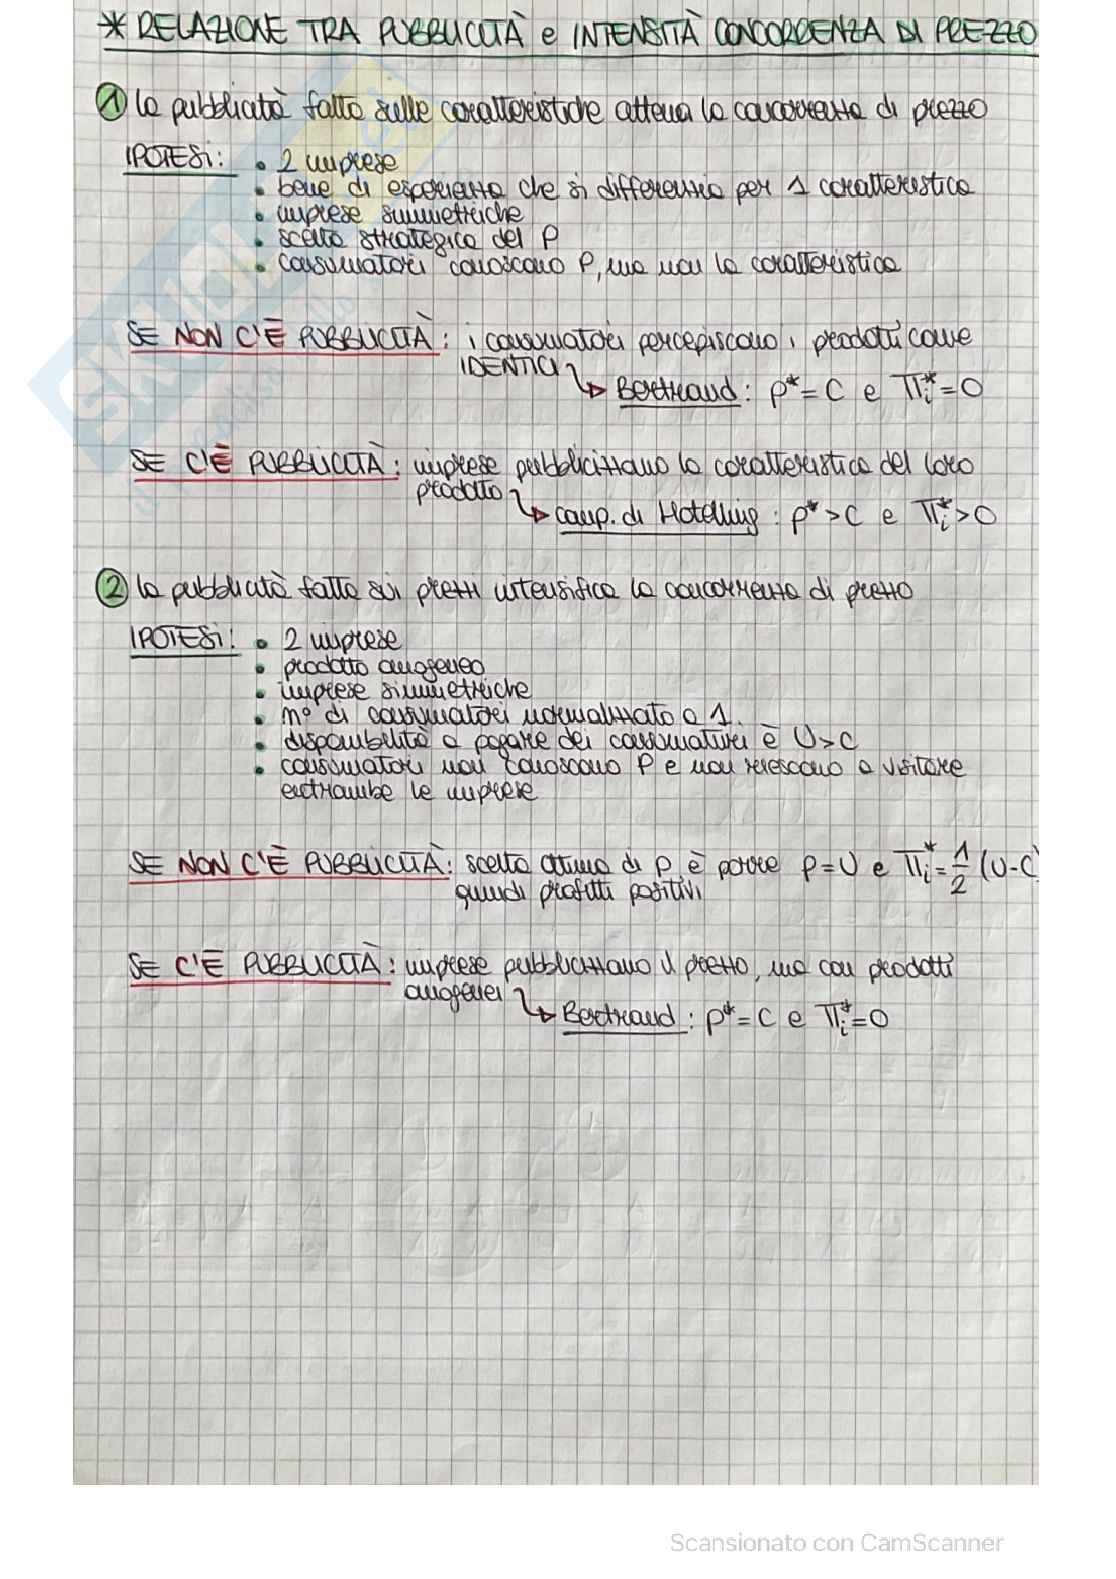 * RELAZIONE TRA PUBBLICITÀ e INTENSITÀ CONCORRENZA DI PREZZO
1 la pubblicità fatta sulle caratteristiche attenua la concorrenza di prezzo
IPOTESI: • 2 imprese
• bene di esperienza che si differenzia per 1 caratteristica
• imprese simmetriche
• scelta strategica del P
• consumatori conoscono P, ma non la caratteristica
SE NON C'È PUBBLICITÀ: i consumatori percepiscono i prodotti come
IDENTICI ↳ Bertrand: p*=C e Πi*=0
SE C'È PUBBLICITÀ: imprese pubblicizzano la caratteristica del loro
prodotto ↳ comp. di Hotelling: p*>C e Πi*>0
2 la pubblicità fatta sui prezzi intensifica la concorrenza di prezzo
IPOTESI: • 2 imprese
• prodotto omogeneo
• imprese simmetriche
• n° di consumatori normalizzato a 1.
• disponibilità a pagare dei consumatori è U>C
• consumatori non conoscono P e non riescono a visitare
entrambe le imprese
SE NON C'È PUBBLICITÀ: scelta ottima di p è porre p=U e Πi*=1/2 (U-C)
quindi profitti positivi
SE C'È PUBBLICITÀ: imprese pubblicizzano il prezzo, ma con prodotti
omogenei ↳ Bertrand: p*=C e Πi*=0
SKUOLA
Scansionato con CamScanner